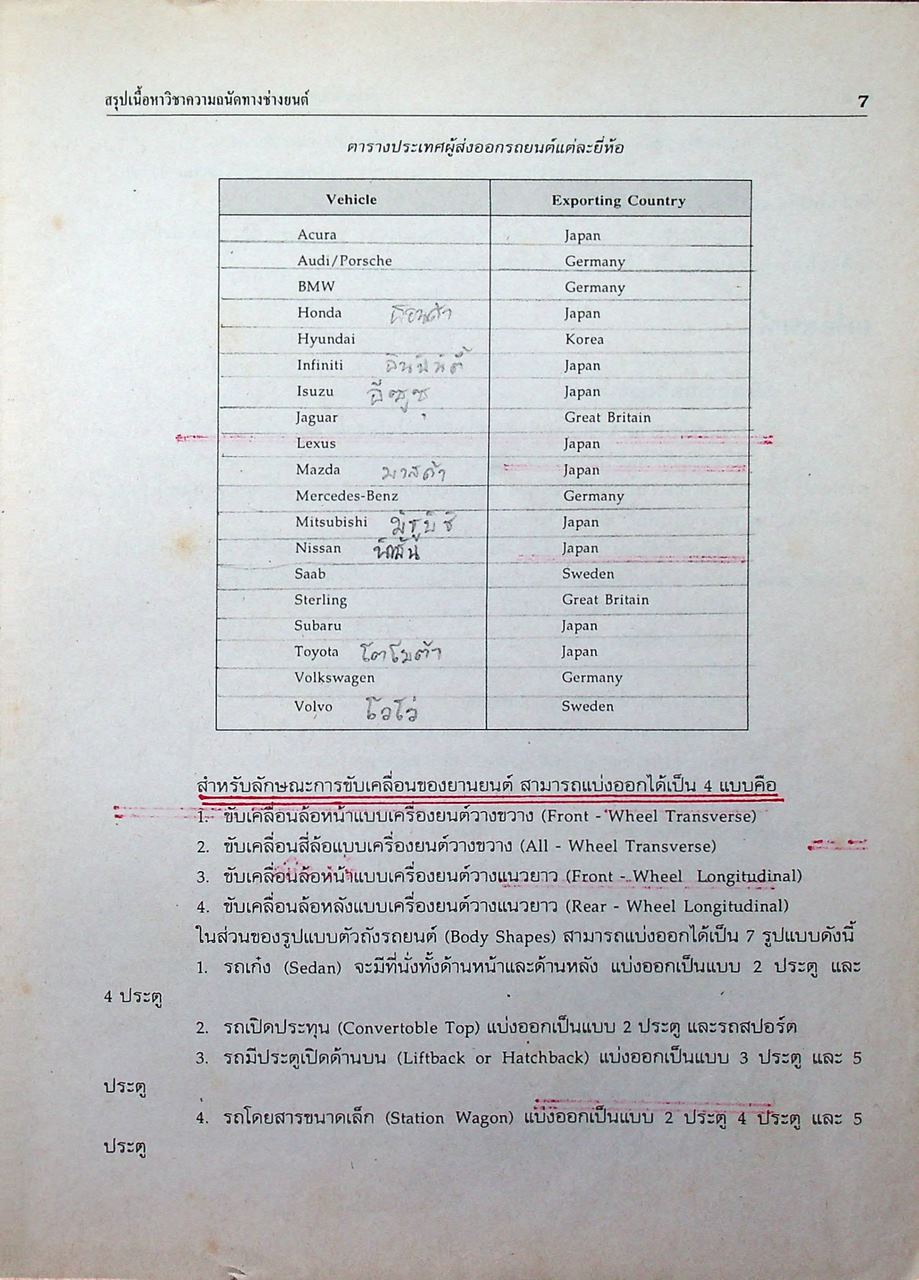 สรุปเนื้อหาวิชาความถนัดทางช่างยนต์ 7
ตารางประเทศผู้ส่งออกรถยนต์แต่ละยี่ห้อ
Vehicle Exporting Country
Acura Japan
Audi/Porsche Germany
BMW Germany
Honda ฮอนด้า Japan
Hyundai Korea
Infiniti Japan
Isuzu อีซูซุ Japan
Jaguar Great Britain
Lexus Japan
Mazda มาสด้า Japan
Mercedes-Benz Germany
Mitsubishi Japan
Nissan Japan
Saab Sweden
Sterling Great Britain
Subaru Japan
Toyota โตโมต้า Japan
Volkswagen Germany
Volvo โวโว่ Sweden
สำหรับลักษณะการขับเคลื่อนของยานยนต์ สามารถแบ่งออกได้เป็น 4 แบบคือ
1. ขับเคลื่อนล้อหน้าแบบเครื่องยนต์วางขวาง (Front - Wheel Transverse)
2. ขับเคลื่อนสี่ล้อแบบเครื่องยนต์วางขวาง (All - Wheel Transverse)
3. ขับเคลื่อนล้อหน้าแบบเครื่องยนต์วางแนวยาว (Front - Wheel Longitudinal)
4. ขับเคลื่อนล้อหลังแบบเครื่องยนต์วางแนวยาว (Rear - Wheel Longitudinal)
ในส่วนของรูปแบบตัวถังรถยนต์ (Body Shapes) สามารถแบ่งออกได้เป็น 7 รูปแบบดังนี้
1. รถเก๋ง (Sedan) จะมีที่นั่งทั้งด้านหน้าและด้านหลัง แบ่งออกเป็นแบบ 2 ประตู และ
4 ประตู
2. รถเปิดประทุน (Convertoble Top) แบ่งออกเป็นแบบ 2 ประตู และรถสปอร์ต
3. รถมีประตูเปิดด้านบน (Liftback or Hatchback) แบ่งออกเป็นแบบ 3 ประตู และ 5
ประตู
4. รถโดยสารขนาดเล็ก (Station Wagon) แบ่งออกเป็นแบบ 2 ประตู 4 ประตู และ 5
ประตู